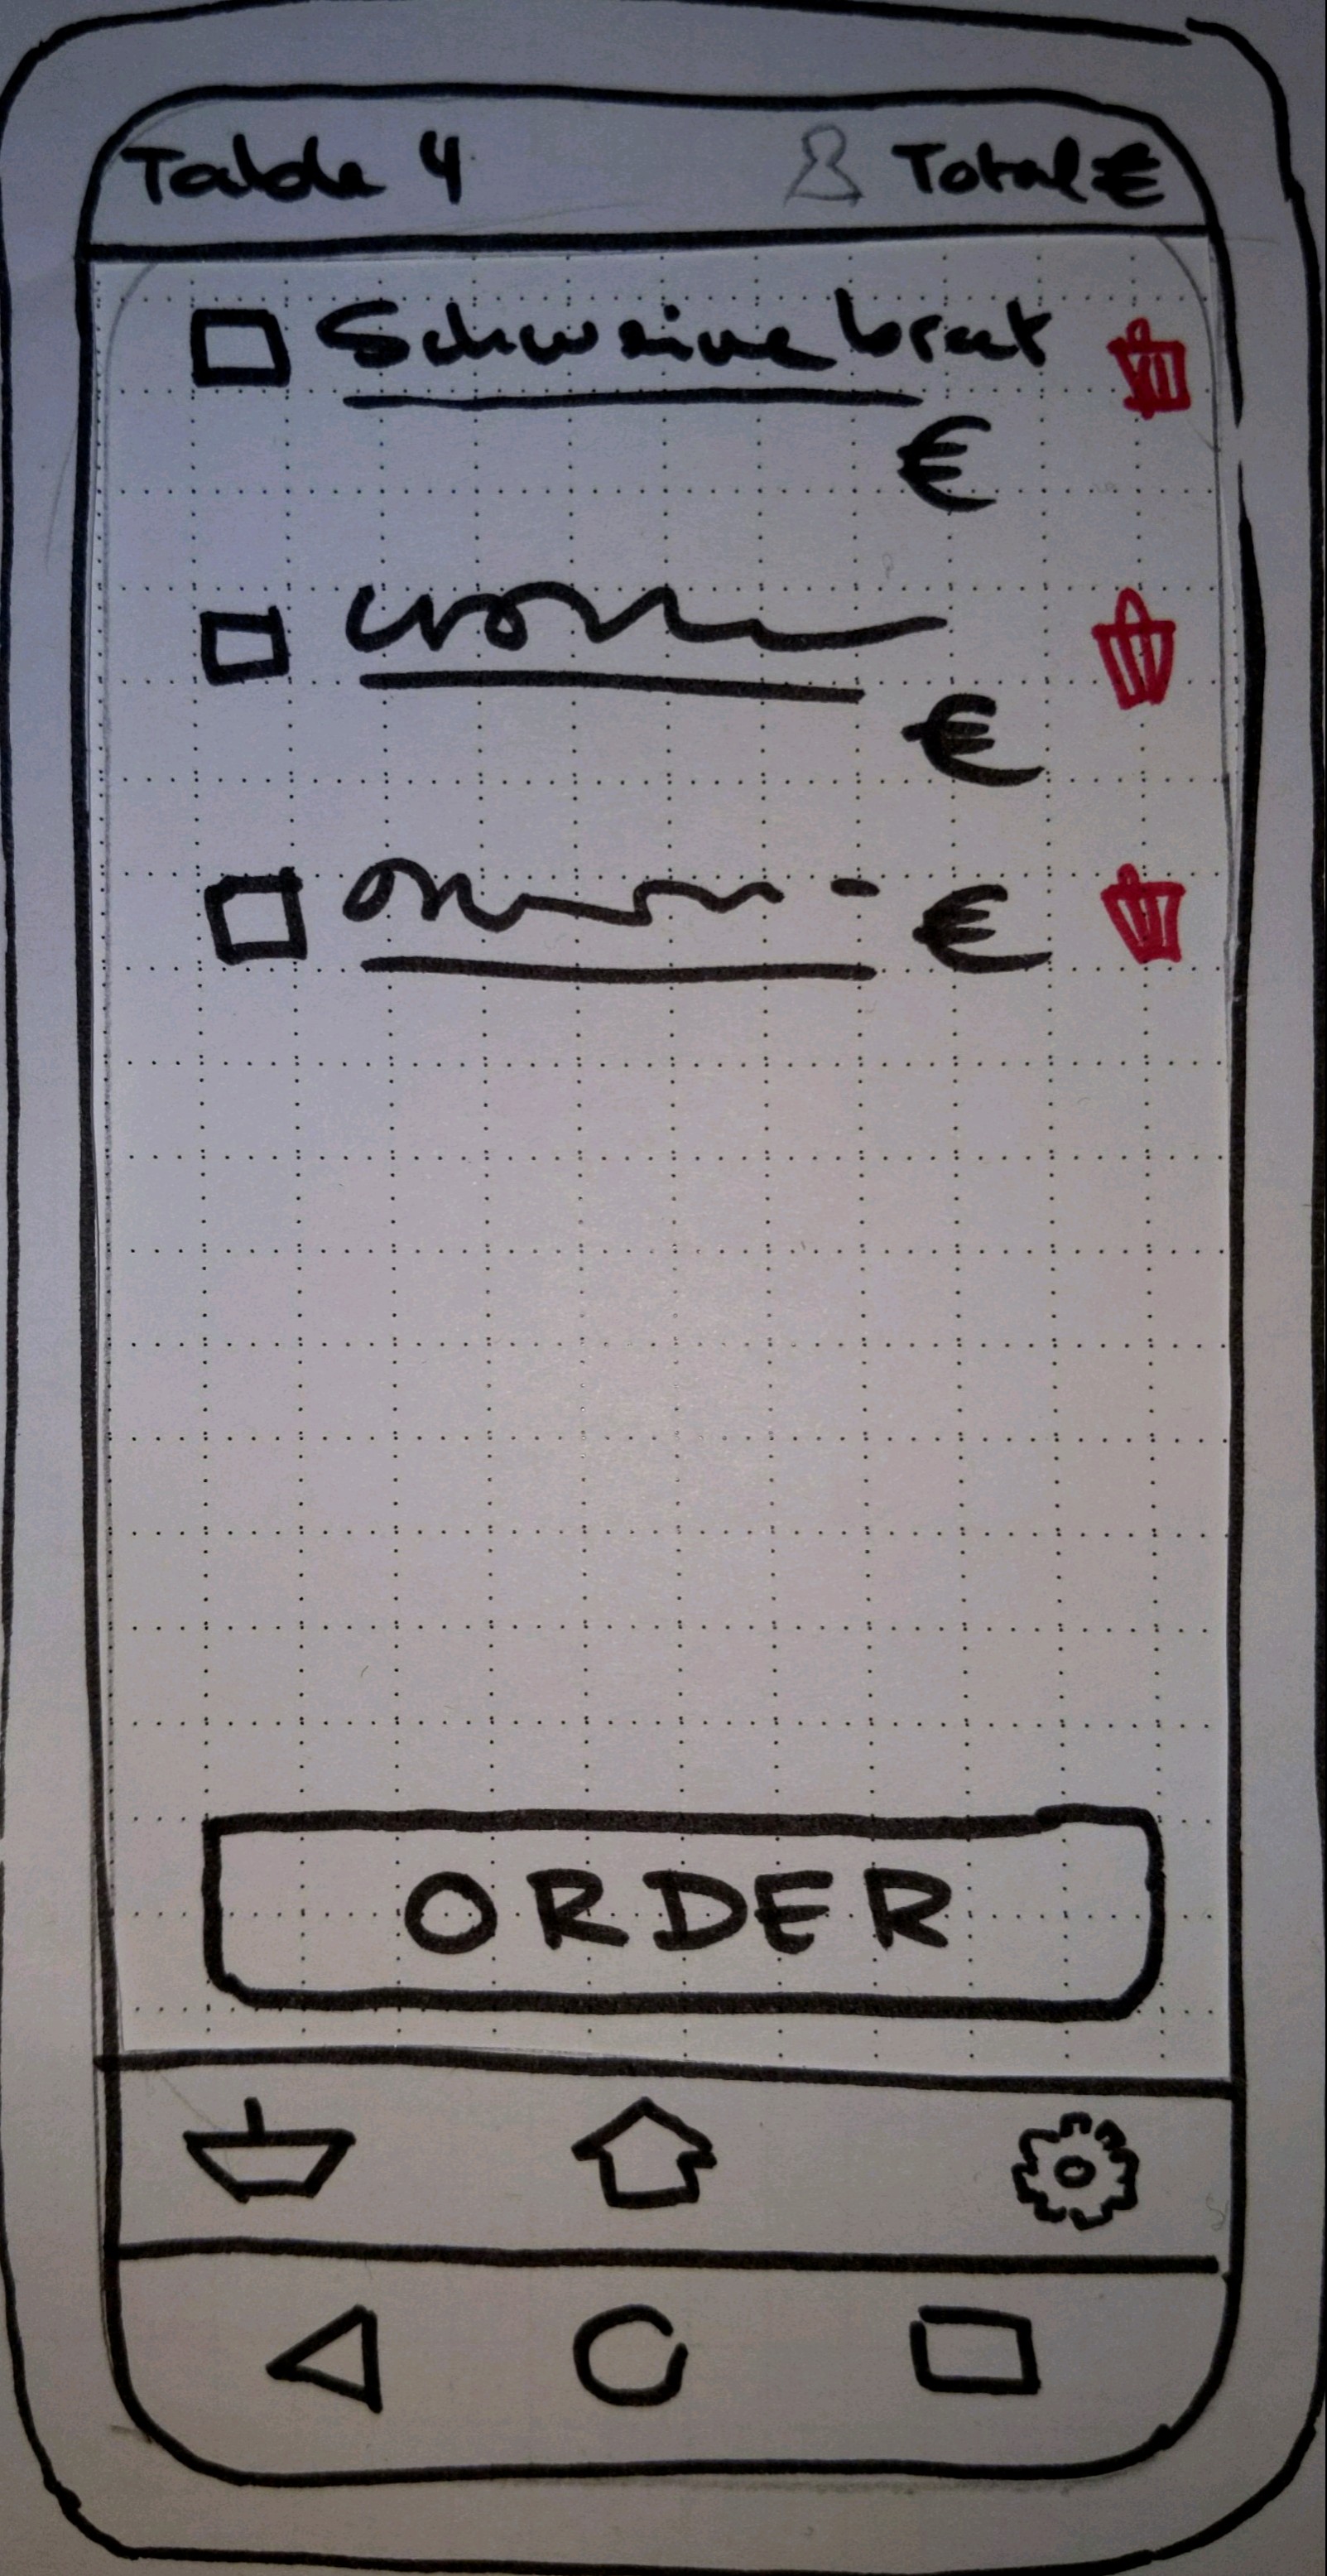 Table 4 Total €
Schweinebrat
€
€
€
ORDER